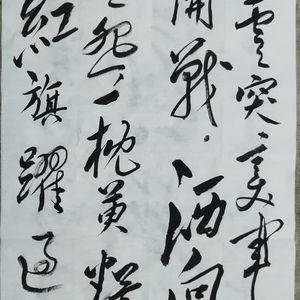 雲突变軍
開戰洒向
怨一枕黄粱
紅旗躍過